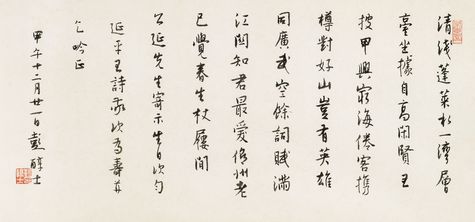 清淺蓬萊水一灣層
臺坐據自高閑賢王
披甲興窮海倦客攜
樽對好山豈有英雄
同廣武空餘詞賦滿
江關知君最愛儋州老
已覺春生杖屨間
延先生寄示生日次勻
延平王詩敬次為壽并
乞吟正
甲午十二月廿一日彭醇士